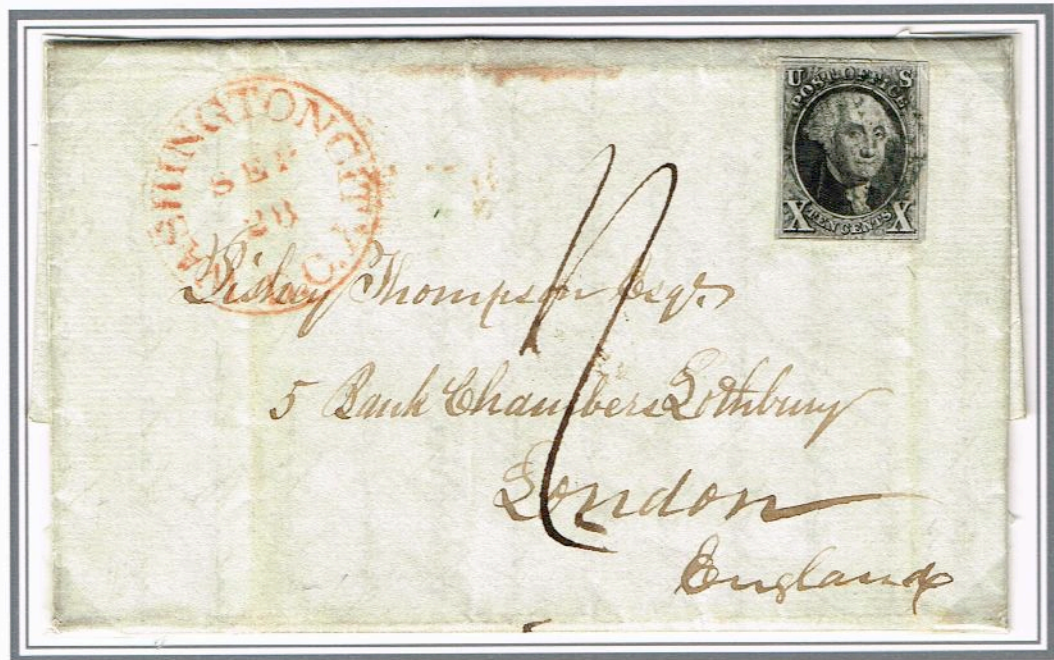 WASHINGTON CITY D.C.
SEP
28
U S
POST OFFICE
X TEN CENTS X
Thompson Esqr.
5 Bank Chambers Lothbury
London
England